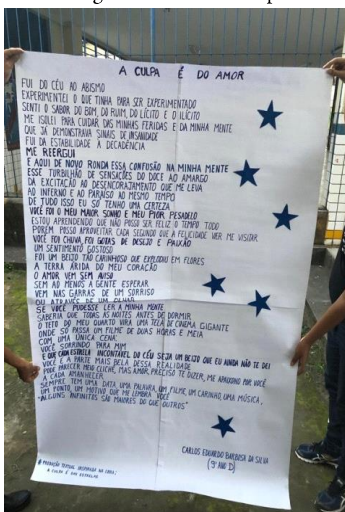 A CULPA É DO AMOR
FUI DO CÉU AO ABISMO
EXPERIMENTEI O QUE TINHA PARA SER EXPERIMENTADO
SENTI O SABOR DO BOM, DO RUIM, DO LÍCITO E O ILÍCITO
ME ISOLEI PARA CUIDAR DAS MINHAS FERIDAS E DA MINHA MENTE
QUE JÁ DEMONSTRAVA SINAIS DE INSANIDADE
FUI DA ESTABILIDADE À DECADÊNCIA
ME REERGUI
E AQUI DE NOVO RONDA ESSA CONFUSÃO NA MINHA MENTE
ESSE TURBILHÃO DE SENSAÇÕES DO DOCE AO AMARGO
DA EXCITAÇÃO AO DESENCORAJAMENTO QUE ME LEVA
AO INFERNO E AO PARAÍSO AO MESMO TEMPO
DE TUDO ISSO EU SÓ TENHO UMA CERTEZA
VOCÊ FOI O MEU MAIOR SONHO E MEU PIOR PESADELO
ESTOU APRENDENDO QUE NÃO POSSO SER FELIZ O TEMPO TODO
PORÉM POSSO APROVEITAR CADA SEGUNDO QUE A FELICIDADE VIER ME VISITAR
VOCÊ FOI CHUVA, FOI GOTAS DE DESEJO E PAIXÃO
UM SENTIMENTO GOSTOSO
FOI UM BEIJO TÃO CARINHOSO QUE EXPLODIU EM FLORES
A TERRA ÁRIDA DO MEU CORAÇÃO
O AMOR VEM SEM AVISO
SEM AO MENOS A GENTE ESPERAR
VEM NAS GARRAS DE UM SORRISO
OU ATRAVÉS DE UM OLHAR
SE VOCÊ PUDESSE LER A MINHA MENTE
SABERIA QUE TODAS AS NOITES ANTES DE DORMIR
O TETO DO MEU QUARTO VIRA UMA TELA DE CINEMA GIGANTE
ONDE SÓ PASSA UM FILME DE DUAS HORAS E MEIA
COM UMA ÚNICA CENA:
VOCÊ SORRINDO PARA MIM
E QUE CADA ESTRELA INCONTÁVEL DO CÉU SEJA UM BEIJO QUE EU AINDA NÃO TE DEI
VOCÊ É A PARTE MAIS BELA DESSA REALIDADE
PODE PARECER MEIO CLICHÊ, MAS AMOR, PRECISO TE DIZER, ME APAIXONO POR VOCÊ
A CADA AMANHECER
SEMPRE TEM UMA DATA, UMA PALAVRA, UM FILME, UM CARINHO, UMA MÚSICA,
UM PONTO, UM MOTIVO QUE ME LEMBRA VOCÊ
"ALGUNS INFINITOS SÃO MAIORES DO QUE OUTROS"
CARLOS EDUARDO BARBOSA DA SILVA
(9º ANO D)
PRODUÇÃO TEXTUAL INSPIRADA NA OBRA:
A CULPA É DAS ESTRELAS